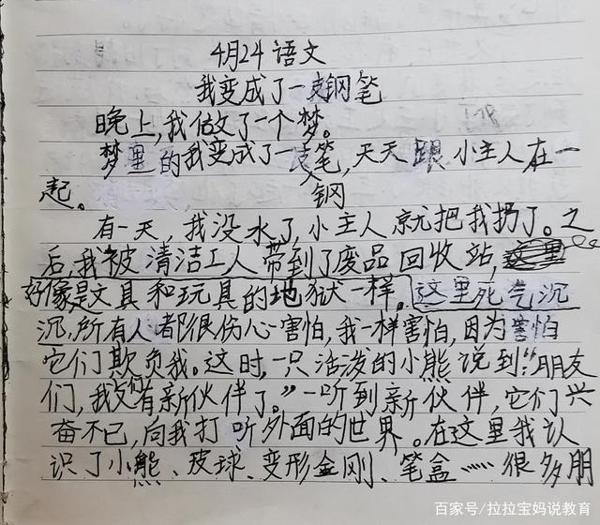 4月24 语文
我变成了一支钢笔
晚上,我做了一个梦。
梦里的我变成了一支钢笔,天天跟小主人在一
起。
有一天,我没水了,小主人就把我扔了。之
后,我被清洁工人带到了废品回收站,
好像是文具和玩具的地狱一样。这里死气沉
沉,所有人都很伤心害怕,我一样害怕,因为害怕
它们欺负我。这时,一只活泼的小熊说到:“朋友
们,我们又有新伙伴了。”一听到新伙伴,它们兴
奋不已,向我打听外面的世界。在这里我认
识了小熊、皮球、变形金刚、笔盒……很多朋
百家号/拉拉宝妈说教育